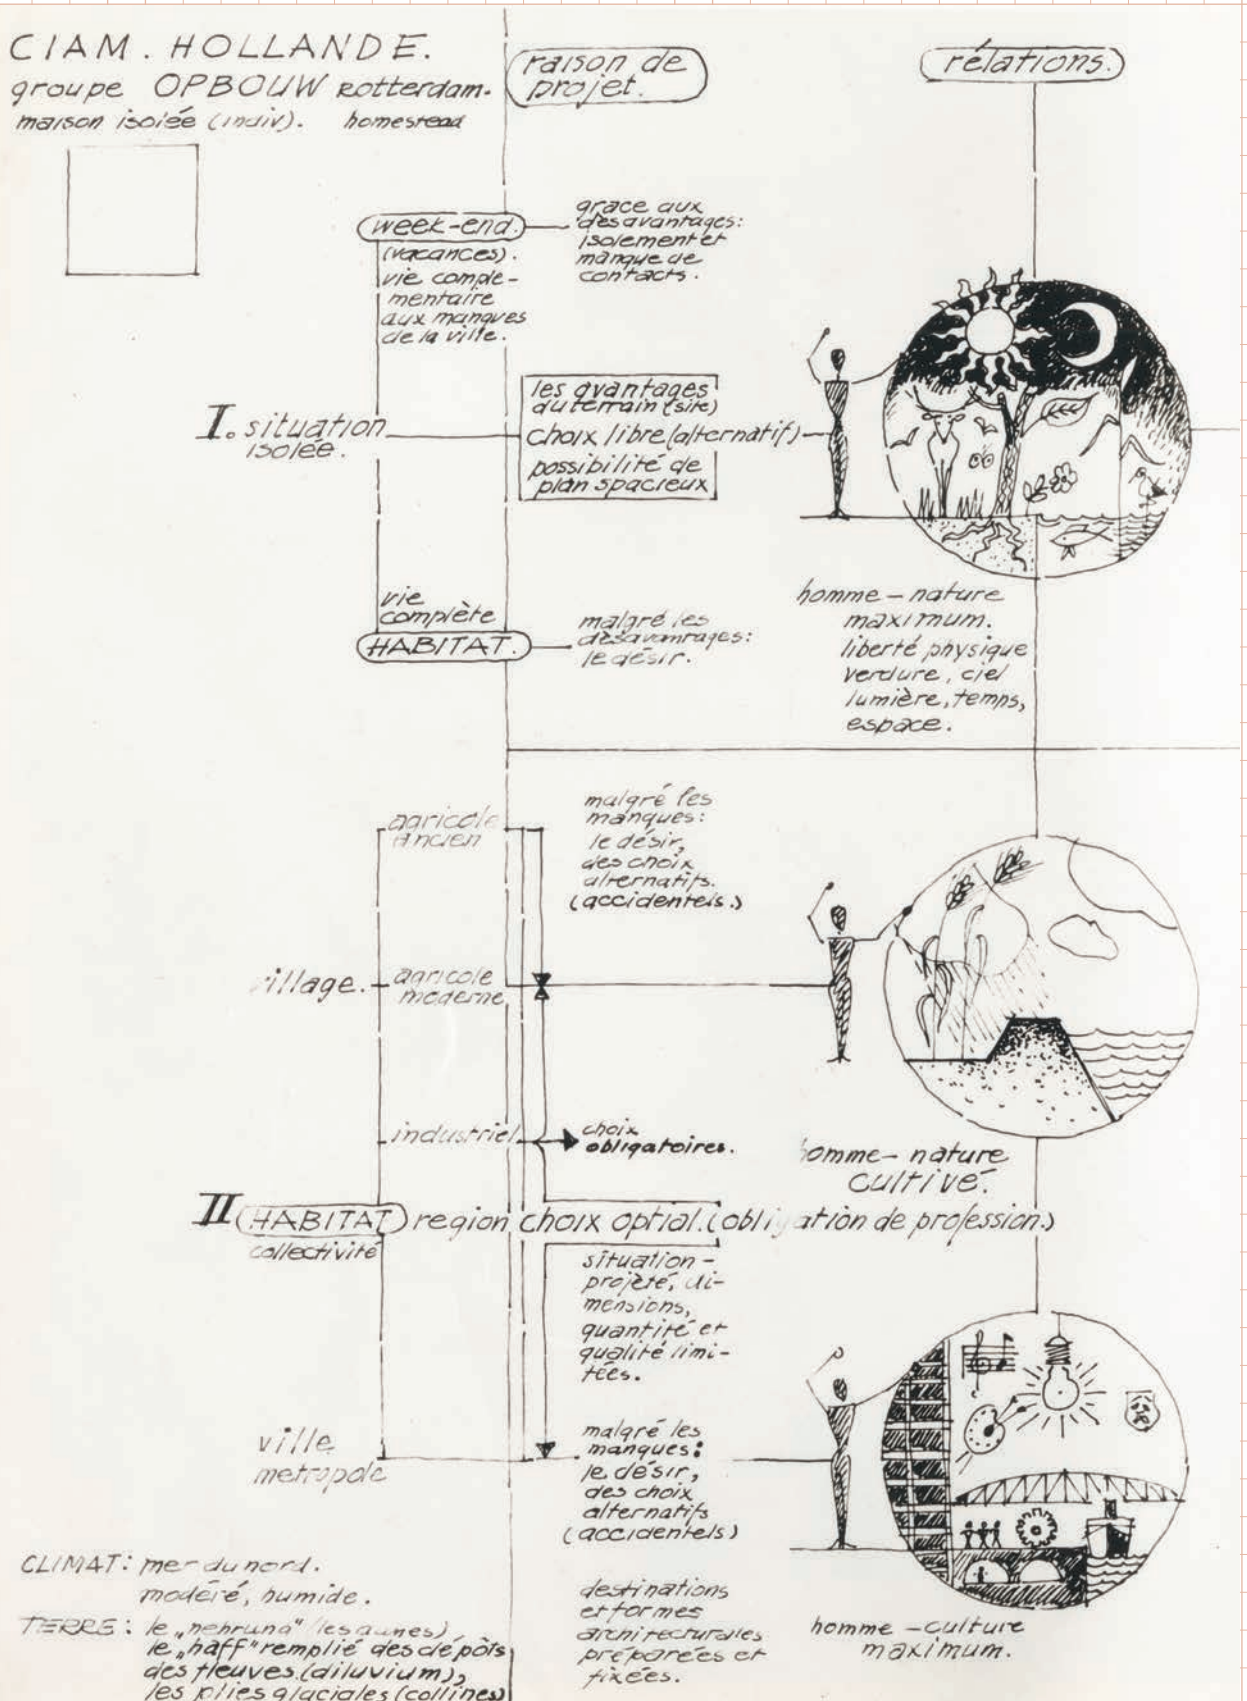 CIAM. HOLLANDE.
groupe OPBOUW Rotterdam.
maison isolée (indiv). homestead
raison de
projet.
rélations.
week-end.
(vacances).
vie comple-
mentaire
aux manques
de la ville.
grace aux
désavantages:
isolement et
manque de
contacts.
I. situation
isolée.
les avantages
du terrain (site)
choix libre (alternatif)
possibilité de
plan spacieux
vie
complète
HABITAT.
malgré les
désavantages:
le désir.
homme - nature
maximum.
liberté physique
verdure, ciel
lumière, temps,
espace.
agricole
ancien
malgré les
manques:
le désir,
des choix
alternatifs.
(accidentels.)
village.
agricole
moderne
industriel.
choix
obligatoires.
homme - nature
cultivé.
II HABITAT region choix optial. (obligation de profession.)
collectivité
situation-
projeté, di-
mensions,
quantité et
qualité limi-
tées.
ville
metropole
malgré les
manques:
le désir,
des choix
alternatifs
(accidentels)
CLIMAT: mer du nord.
modéré, humide.
TERRE: le „nehrung" (les dunes)
le „haff" remplié des dépôts
des fleuves. (diluvium),
les plies glaciales (collines)
destinations
et formes
architecturales
préparées et
fixées.
homme - culture
maximum.